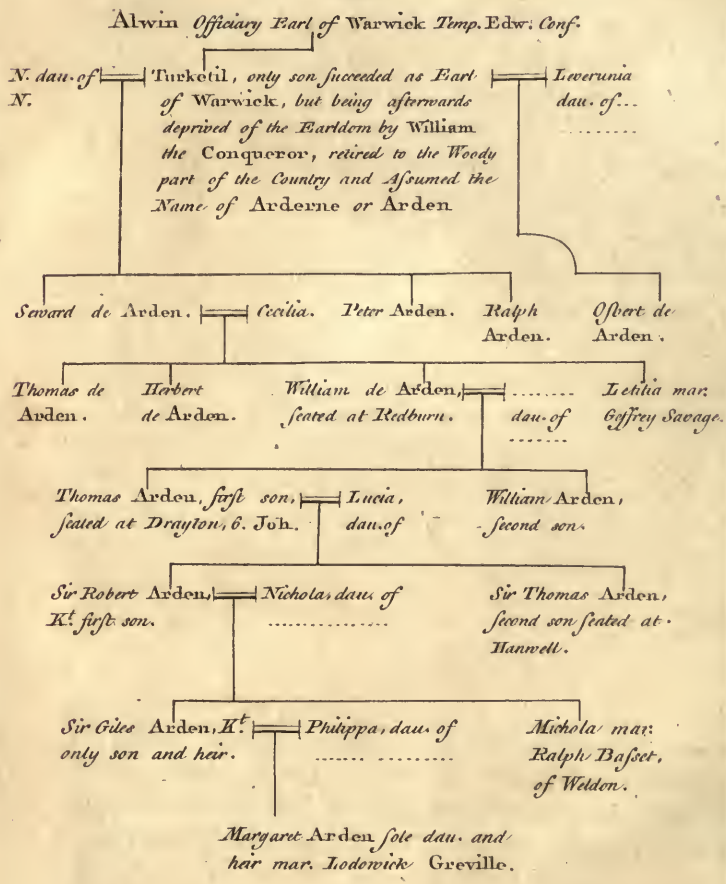 Alwin Officiary Earl of Warwick Temp. Edw: Conf.
N. dau. of
N.
Turketil, only son succeeded as Earl
of Warwick, but being afterwards
deprived of the Earldom by William
the Conqueror, retired to the Woody
part of the Country and Aſsumed the
Name of Arderne or Arden
Leverunia
dau. of...
........
Seward de Arden.
Cecilia.
Peter Arden.
Ralph
Arden.
Oſbert de
Arden.
Thomas de
Arden.
Herbert
de Arden.
William de Arden,
ſeated at Redburn.
........
dau. of
.......
Letilia mar.
Geffrey Savage.
Thomas Arden, firſt son,
ſeated at Drayton, 6. Joh.
Lucia,
dau. of
William Arden,
ſecond son.
Sir Robert Arden,
Kt. firſt son.
Nichola, dau. of
..................
Sir Thomas Arden,
ſecond son ſeated at
Hanwell.
Sir Giles Arden, Kt.
only son and heir.
Philippa, dau. of
....... ..........
Michola mar:
Ralph Baſset,
of Weldon.
Margaret Arden ſole dau. and
heir mar. Lodowick Greville.